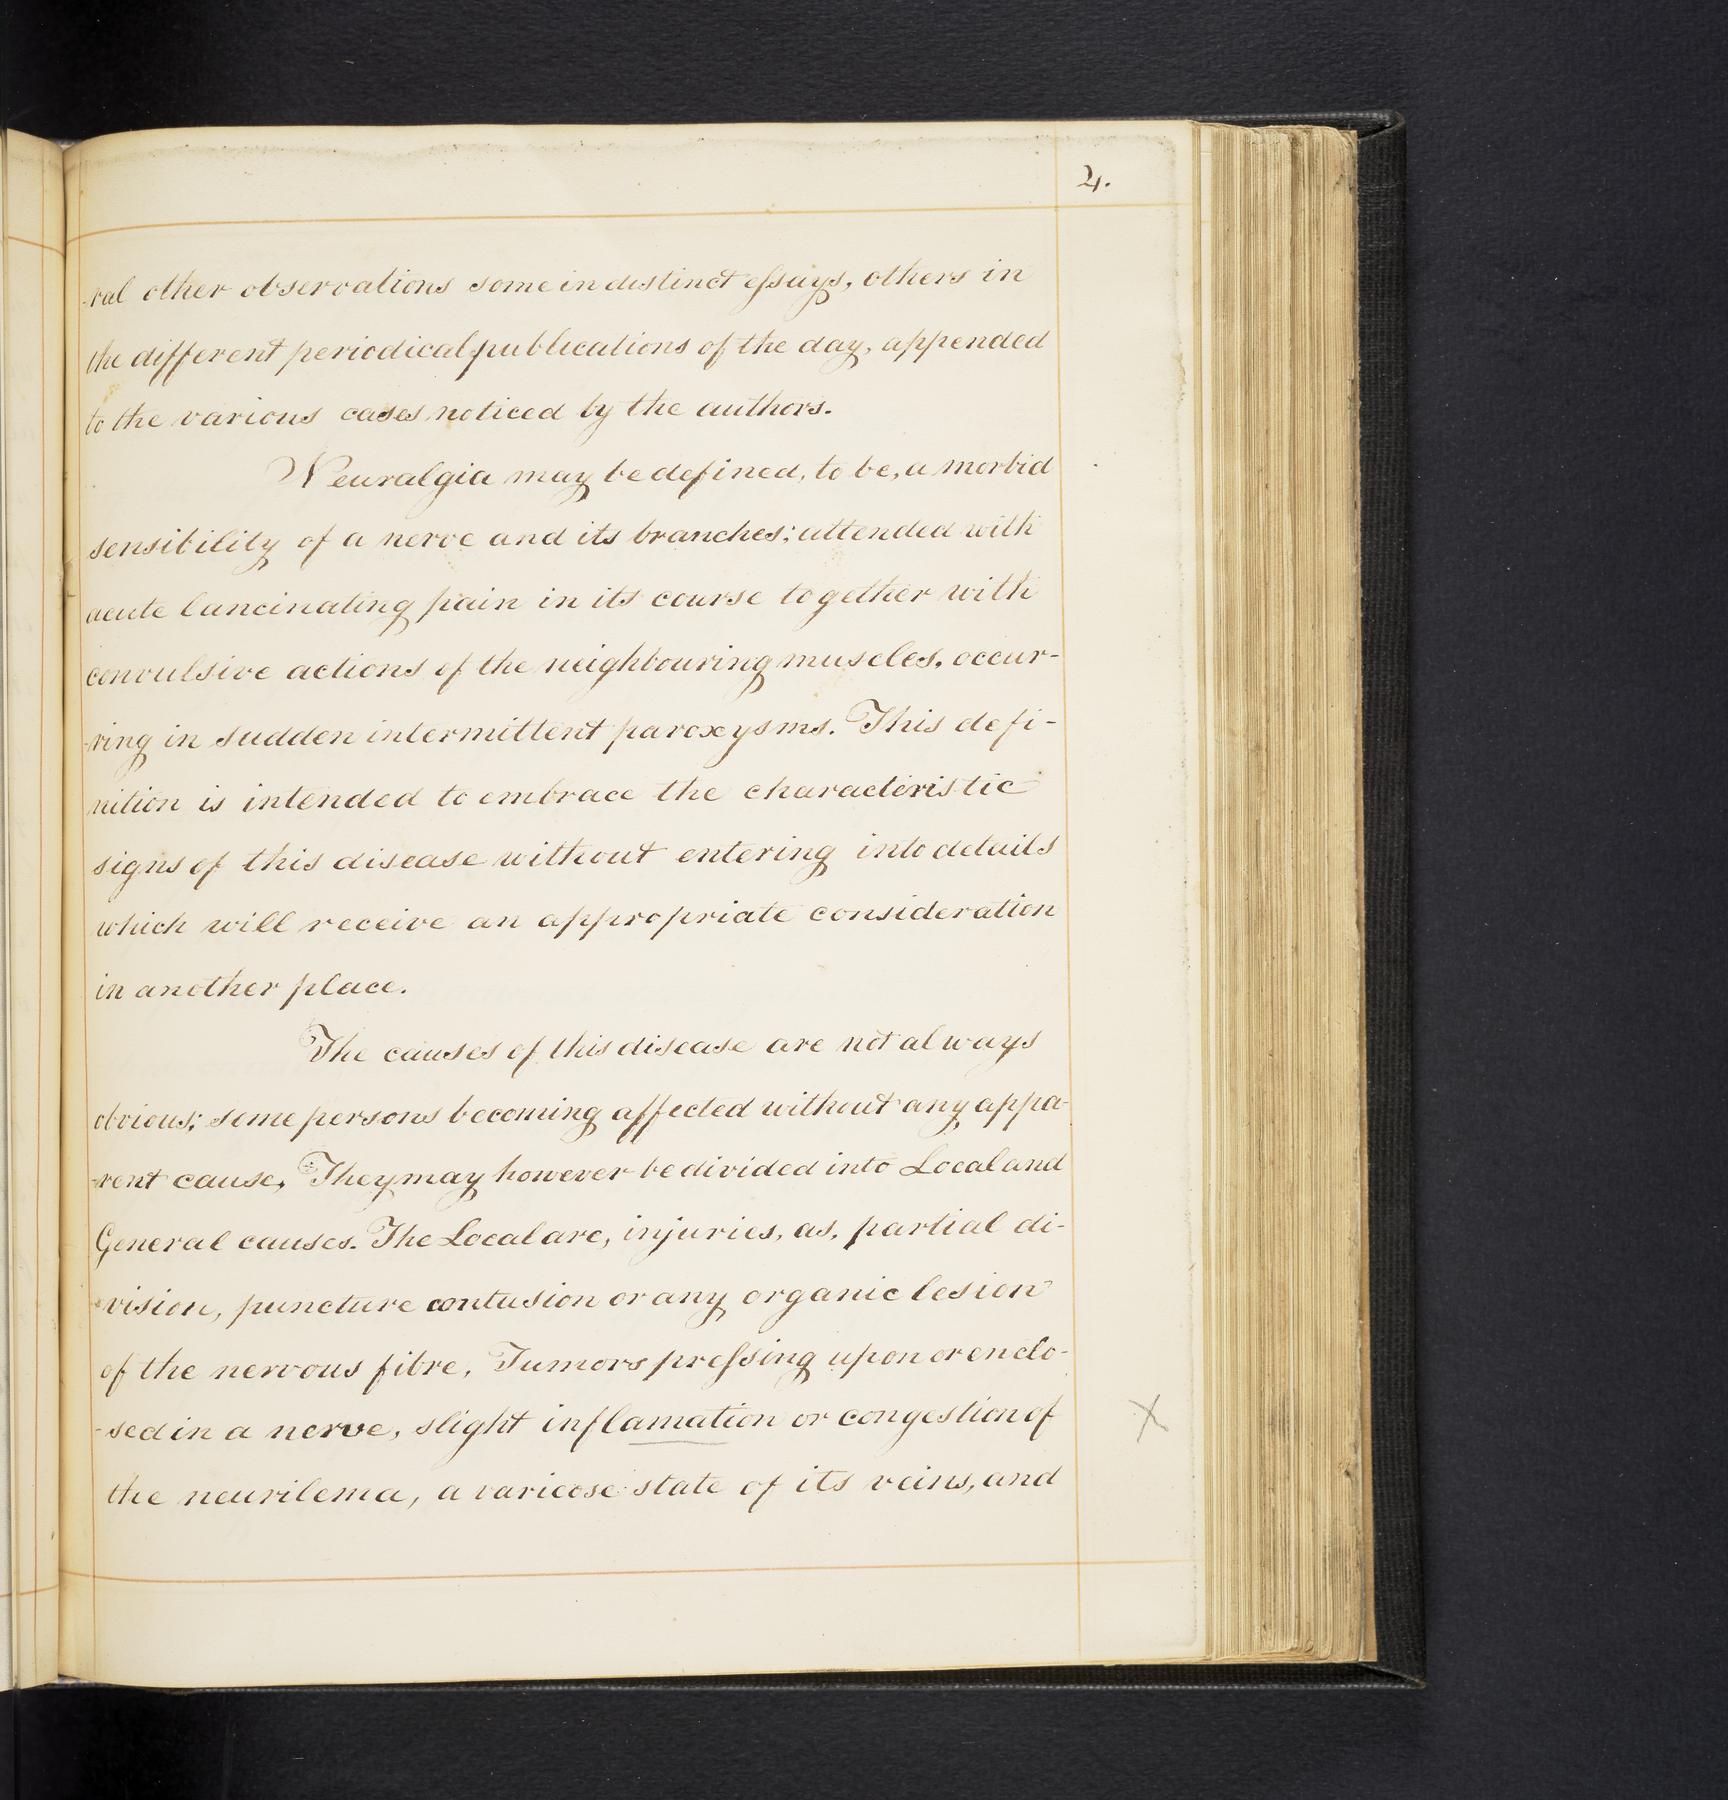 4.
-ral other observations some in distinct eſsays, others in
the different periodical publications of the day, appended
to the various cases noticed by the authors.
Neuralgia may be defined, to be, a morbid
sensibility of a nerve and its branches; attended with
acute lancinating pain in its course together with
convulsive actions of the neighbouring muscles, occur-
-ring in sudden intermittent paroxysms. This defi-
nition is intended to embrace the characteristic
signs of this disease without entering into details
which will receive an appropriate consideration
in another place.
The causes of this disease are not always
obvious; some persons becoming affected without any appa-
-rent cause, They may however be divided into Local and
General causes. The Local are, injuries, as, partial di-
-vision, puncture contusion or any organic lesion
of the nervous fibre, Tumors preſsing upon or enclo-
-sed in a nerve, slight inflamation or congestion of
X
the neurilema, a varicose state of its veins, and